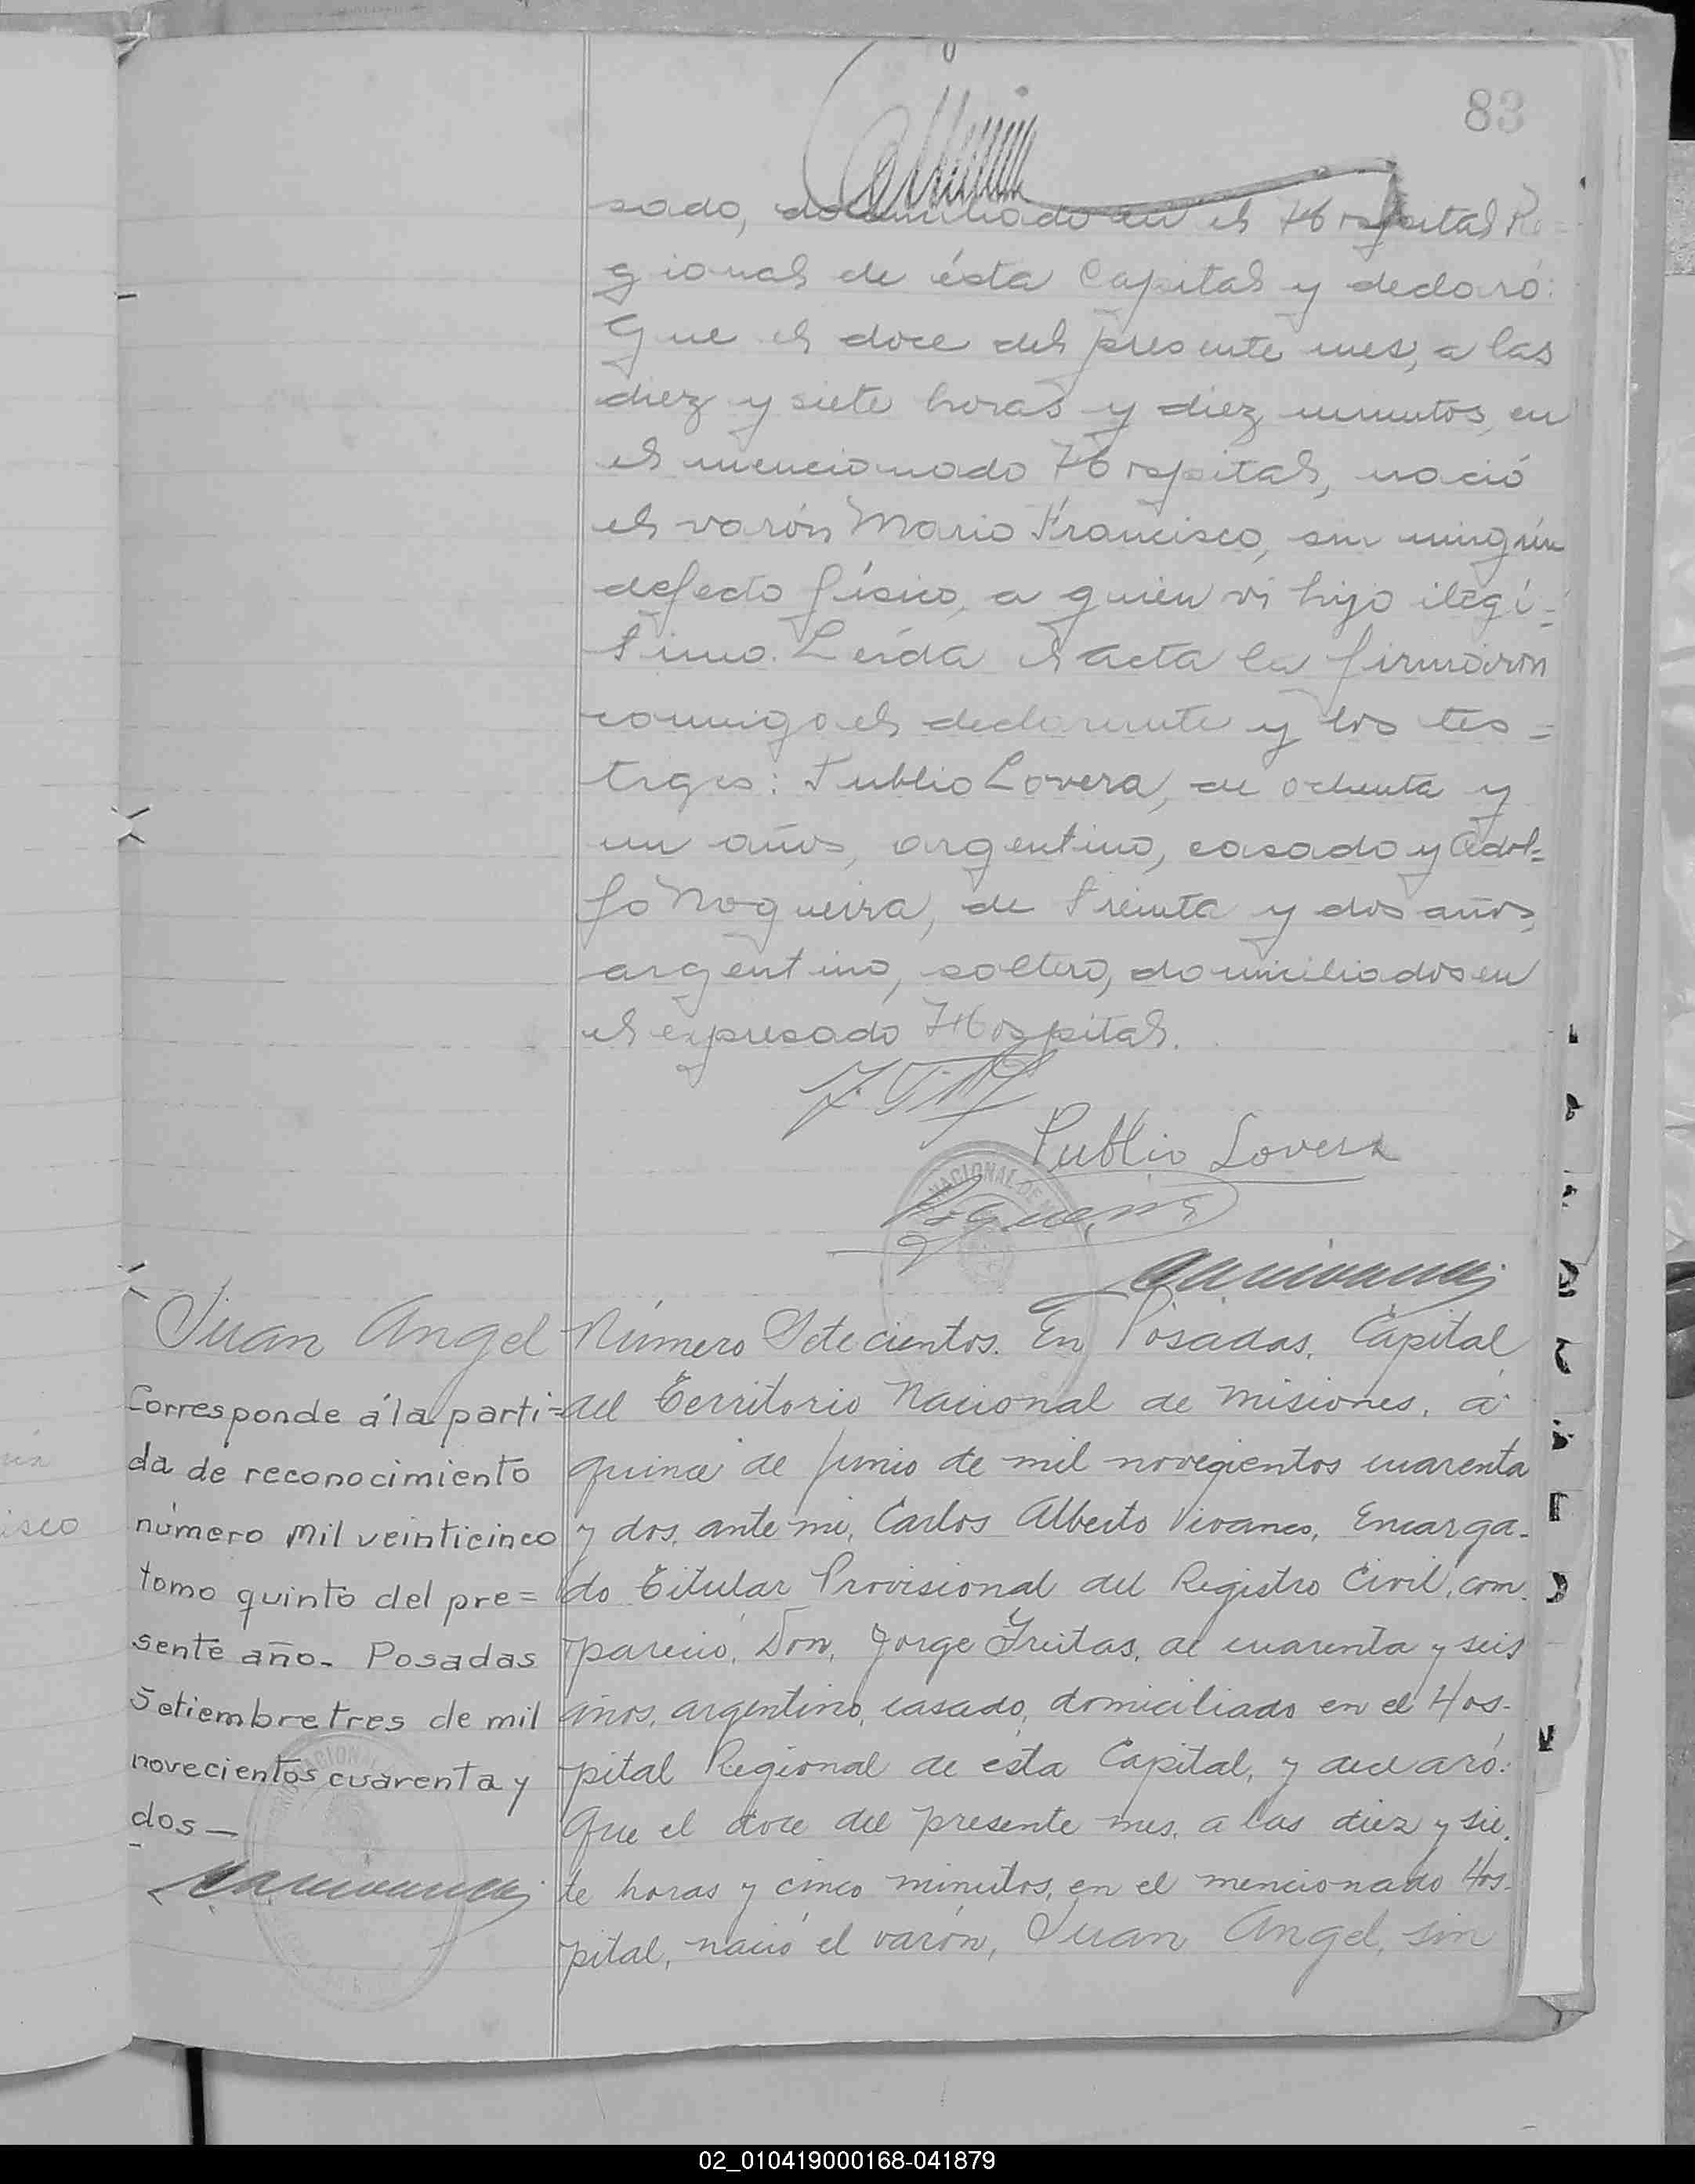 83
sado, domiciliado en el Hospital Re=
gional de ésta Capital y declaró:
Que el doce del presente mes, a las
diez y siete horas y diez minutos, en
el mencionado Hospital, nació
el varón Mario Francisco, sin ningún
defecto físico, a quien vi hijo ilegí=
timo. Leída el acta la firmaron
conmigo el declarante y los tes=
tigos: Publio Lovera, de ochenta y
un años, argentino, casado y Adol=
fo Nogueira, de treinta y dos años,
argentino, soltero, domiciliados en
el expresado Hospital.
Publio Lovera
Nogueira
NACIONAL DE
Juan Angel
Corresponde á la parti=
da de reconocimiento
número mil veinticinco
tomo quinto del pre=
sente año. Posadas
Setiembre tres de mil
novecientos cuarenta y
dos —
Número Setecientos. En Posadas, Capital
del Territorio Nacional de Misiones, á
quince de Junio de mil novecientos cuarenta
y dos, ante mi, Carlos Alberto Vivanco, Encarga-
do Titular Provisional del Registro Civil, com-
pareció, Don, Jorge Freitas, de cuarenta y seis
años, argentino, casado, domiciliado en el Hos-
pital Regional de ésta Capital, y declaró:
Que el doce del presente mes, a las diez y sie-
te horas y cinco minutos, en el mencionado Hos-
pital, nació el varón, Juan Angel, sin
02_010419000168-041879